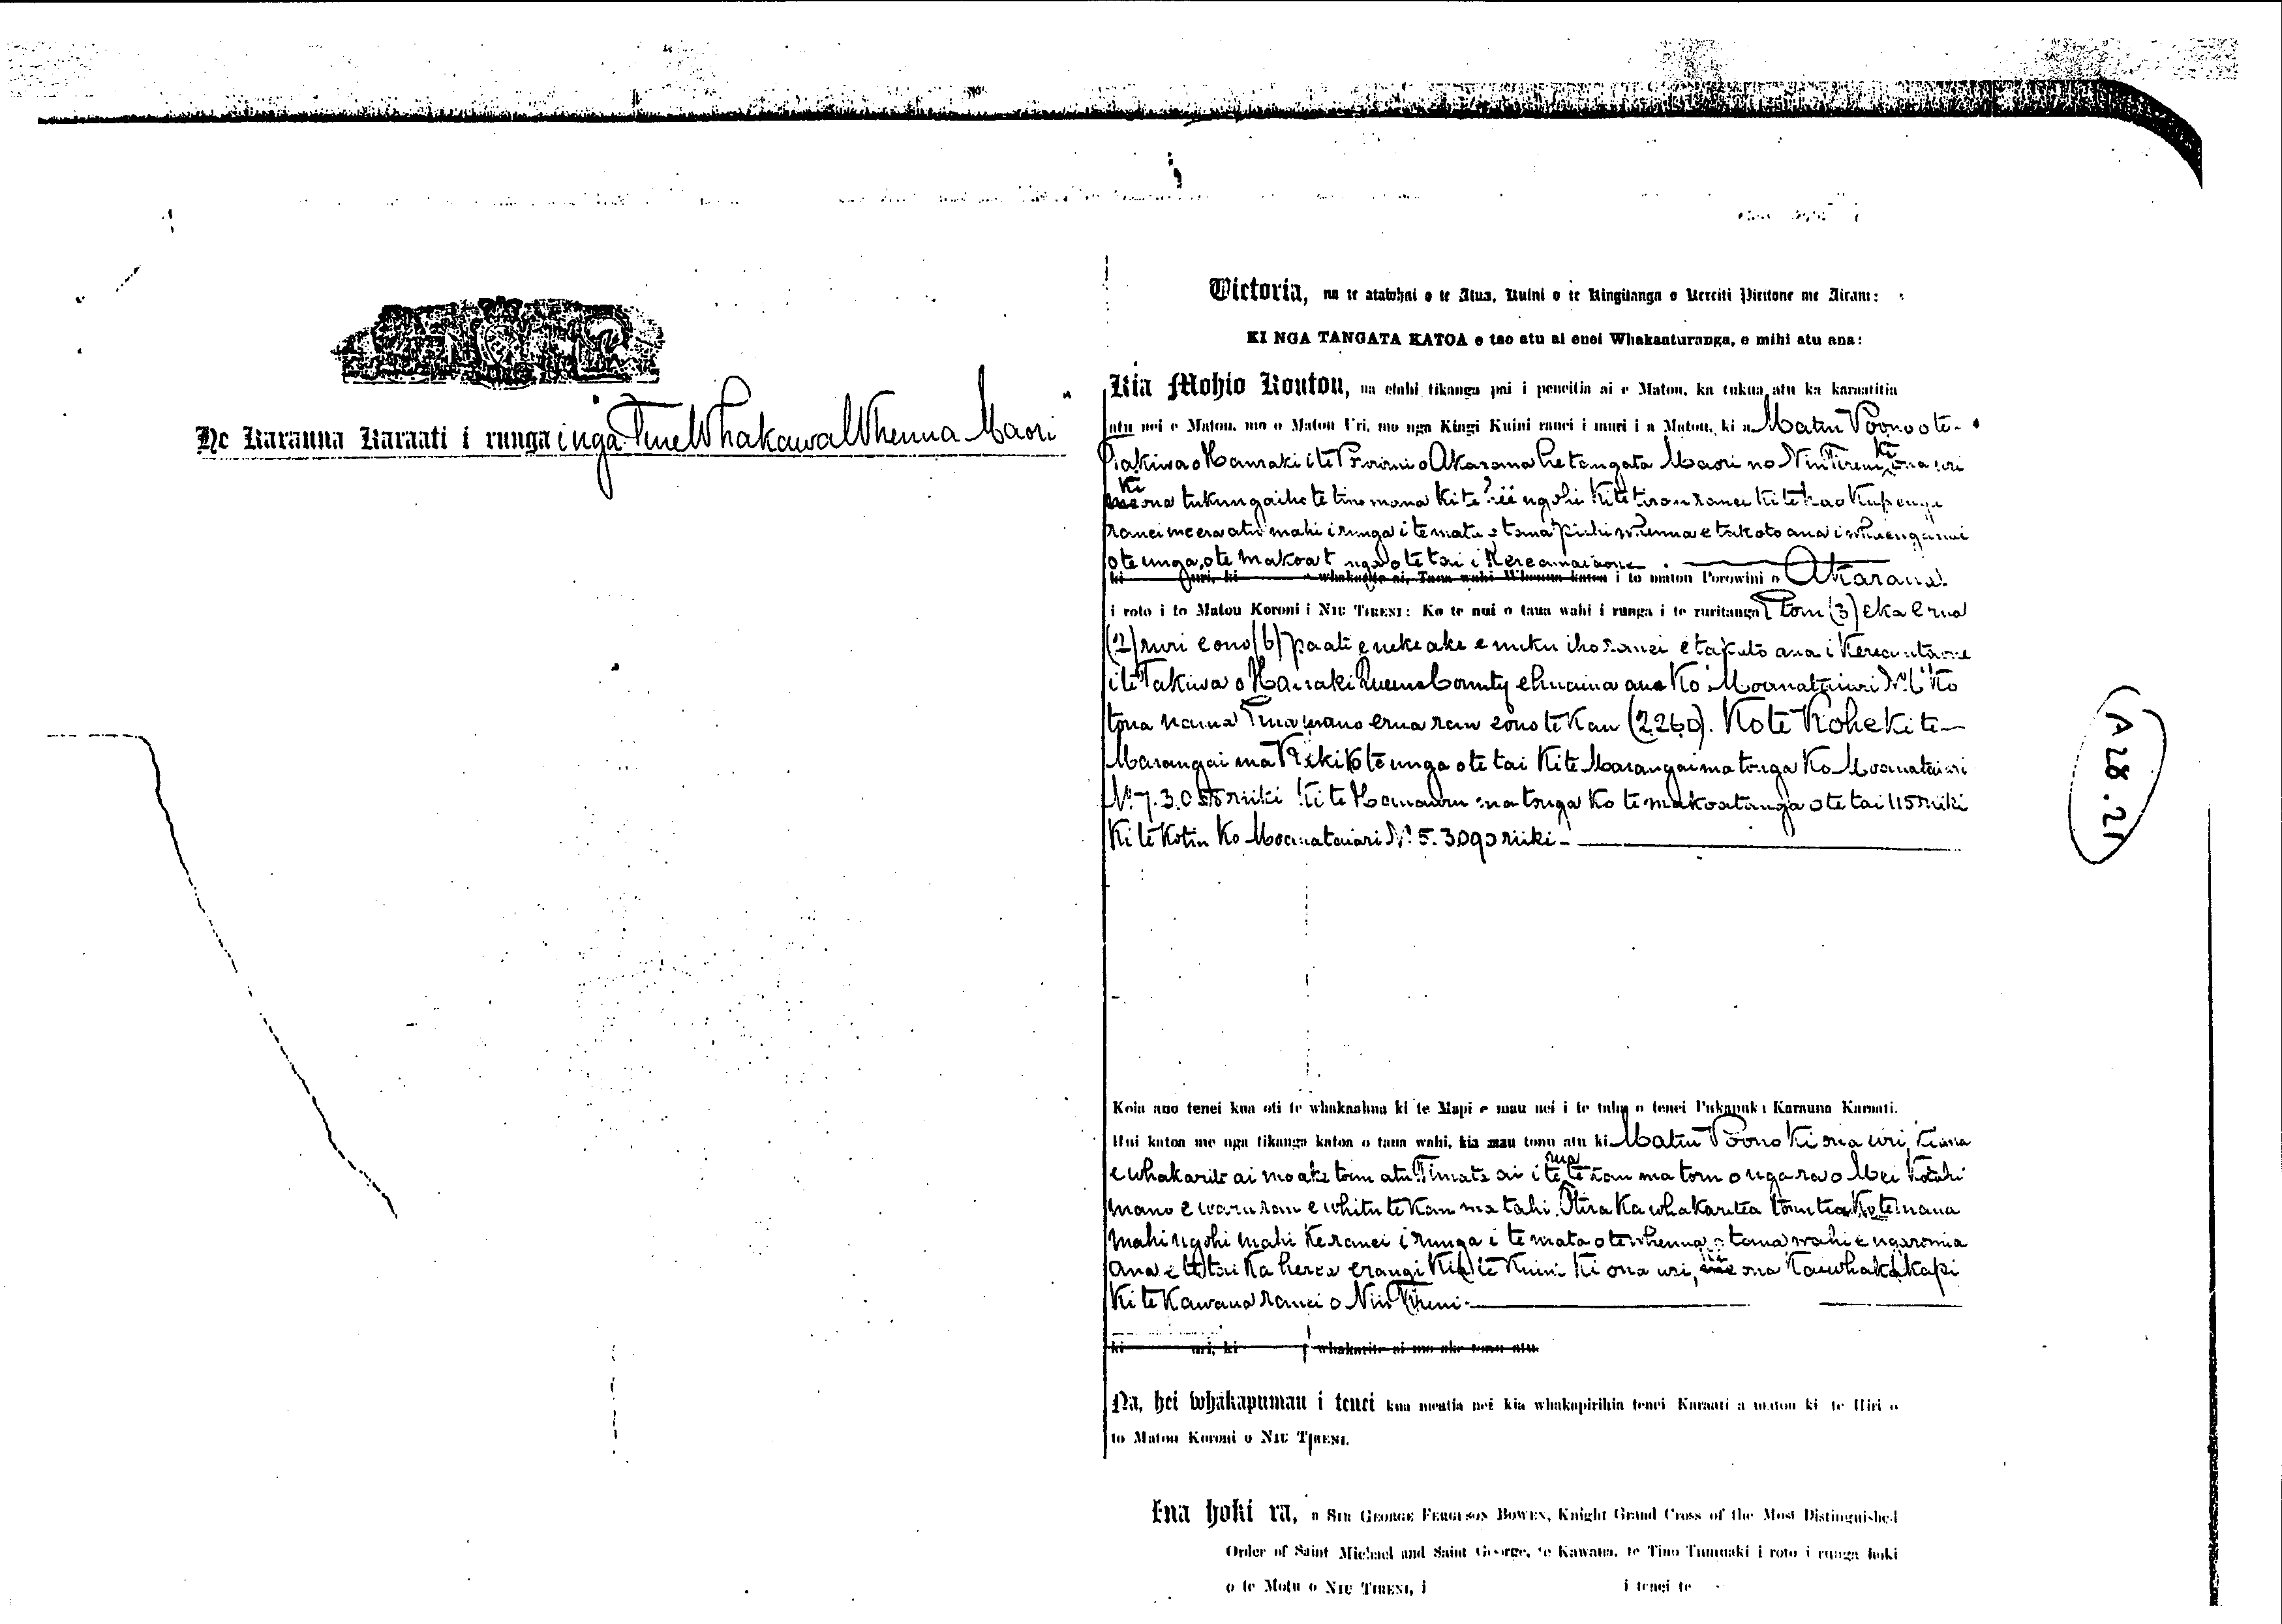 He Karauna Karaati i runga i nga Ture Whakawa Whenua Maori
Victoria, na te atawhai o te Atua, Kuini o te Kingitanga o Kereiti Piritone me Airani:
KI NGA TANGATA KATOA e tae atu ai enei Whakaaturanga, e mihi atu ana:
Kia Mohio Koutou, na etahi tikanga pai i peneitia ai e Matou, ka tukua atu ka karaatitia
atu nei e Matou, mo o Matou Uri, mo nga Kingi Kuini ranei i muri i a Matou, ki a Matiu Poono o te
Takiwa o Hauraki i te Porowini o Akarana he tangata Maori no Niu Tireni ki ona uri
me ki ona tukunga iho te tino mana ki te hii ngohi ki te tirou ranei ki te hao kupenga
ranei me era atu mahi i runga i te mata o taua pihi whenua e takoto ana i waenganui
o te unga, o te makoatanga o te tai i Kereamataone
ki uri, ki whakarite ai, Taua wahi Whenua katoa i to matou Porowini o Akarana
i roto i to Matou Koroni i NIU TIRENI: Ko te nui o taua wahi i runga i te ruritanga E toru (3) eka e rua
(2) ruri e ono (6) paati e neke ake e muku iho ranei e takoto ana i Kereamataone
i te Takiwa o Hauraki Queens County e huaina ana Ko Moanataiari No. 6 Ko
tona nama E rua mano e rua rau e ono te kau (2260). Ko te Rohe ki te
Marangai ma Raki Ko te unga o te tai Ki te Marangai ma tonga Ko Moanataiari
No. 7. 3055 riiki Ki te Hauauru ma tonga Ko te makoatanga o te tai 115 riiki
Ki te Kotiu Ko Moanataiari No. 5. 3090 riiki
Koia ano tenei kua oti te whakaahua ki te Mapi e mau nei i te taha o tenei Pukapuka Karauna Karaati.
Hui katoa me nga tikanga katoa o taua wahi, kia mau tonu atu ki Matiu Poono Ki ona uri, Ki ana
e whakarite ai mo ake tonu atu. Timata ai i te rua te kau ma toru o nga ra o Mei Kotahi
mano e waru rau e whitu te kau ma tahi. Otira Ka whakaritea tonutia Ko te mana
mahi ngohi mahi ke ranei i runga i te mata o te whenua o taua wahi e ngaromia
ana e te tai Ka herea erangi Kia te Kuini Ki ona uri, ki ona Kaiwhakakapi
Ki te Kawana ranei o Niu Tireni
ki uri, ki whakarite ai mo ake tonu atu.
Na, hei whakapumau i tenei kua meatia nei kia whakapirihia tenei Karaati a matou ki te Hiri o
to Matou Koroni o NIU TIRENI.
Ena hoki ra, a SIR GEORGE FERGUSON BOWEN, Knight Grand Cross of the Most Distinguished
Order of Saint Michael and Saint George, te Kawana, te Tino Tumuaki i roto i runga hoki
o te Motu o NIU TIRENI, i i tenei te
(A 28. 21)